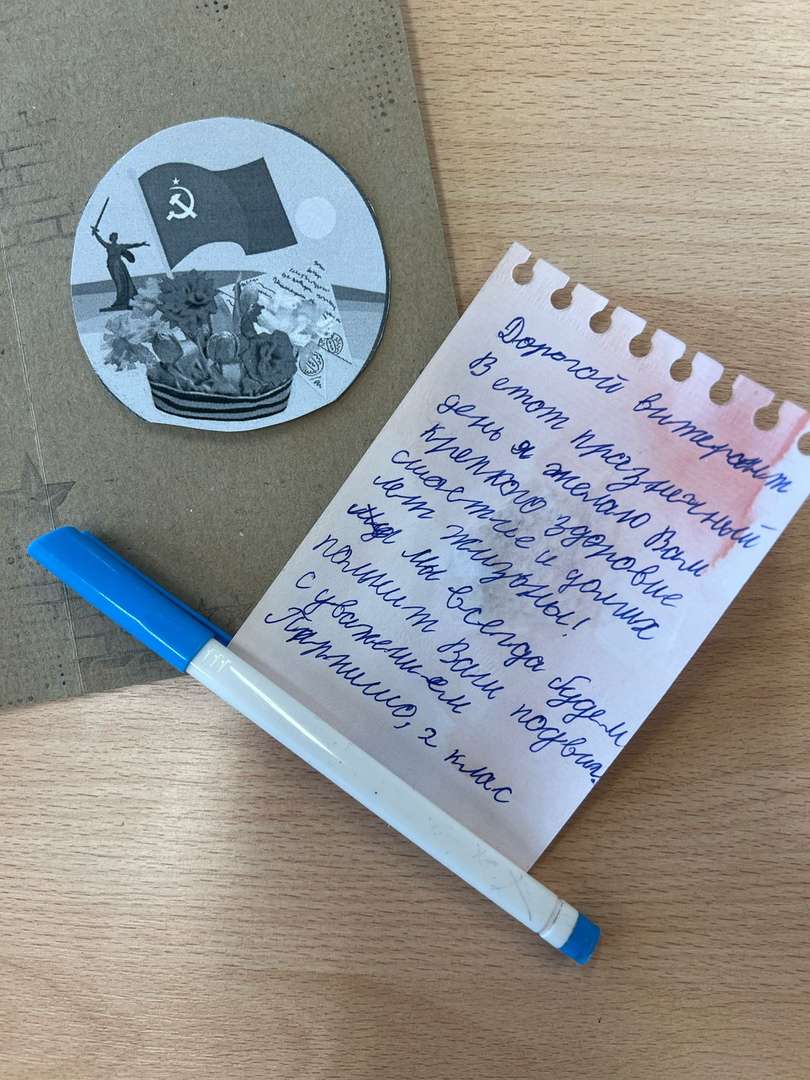 Дорогой витерант
В етот празнечный
день я желаю Вам
крепкого здоровие
счастье и долгих
лет жизоны!
мы всегда будем
помнит Ваш подвиг.
с уважением
2 клас